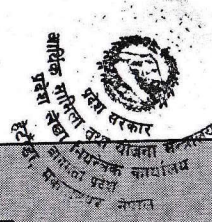 प्रदेश सरकार
आर्थिक मामिला तथा योजना मन्त्रालय
प्रदेश लेखा नियन्त्रक कार्यालय
बागमती प्रदेश
हेटौंडा, मकवानपुर नेपाल